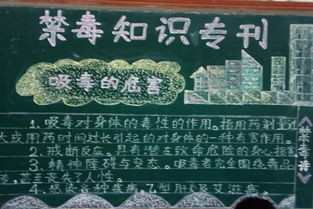 禁毒知识专刊
吸毒的危害
1. 吸毒对身体的毒性的作用。指用药剂量过
大或用药时间过长引起的对身体的一种毒害作用。
2. 戒断反应。具有潜在致命危险的身心
3. 精神障碍与变态。吸毒者完全围绕毒品
去人性。
4. 感染各种疾病，乙型肝炎及艾滋病。